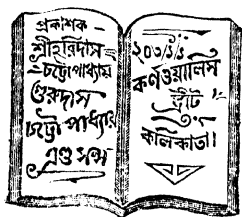 প্রকাশক
শ্রীহরিদাস
চট্টোপাধ্যায়
গুরুদাস
চট্টোপাধ্যায়
এণ্ড সন্স
২০৩।১।১
কর্ণওয়ালিস
ষ্ট্রীট
কলিকাতা।